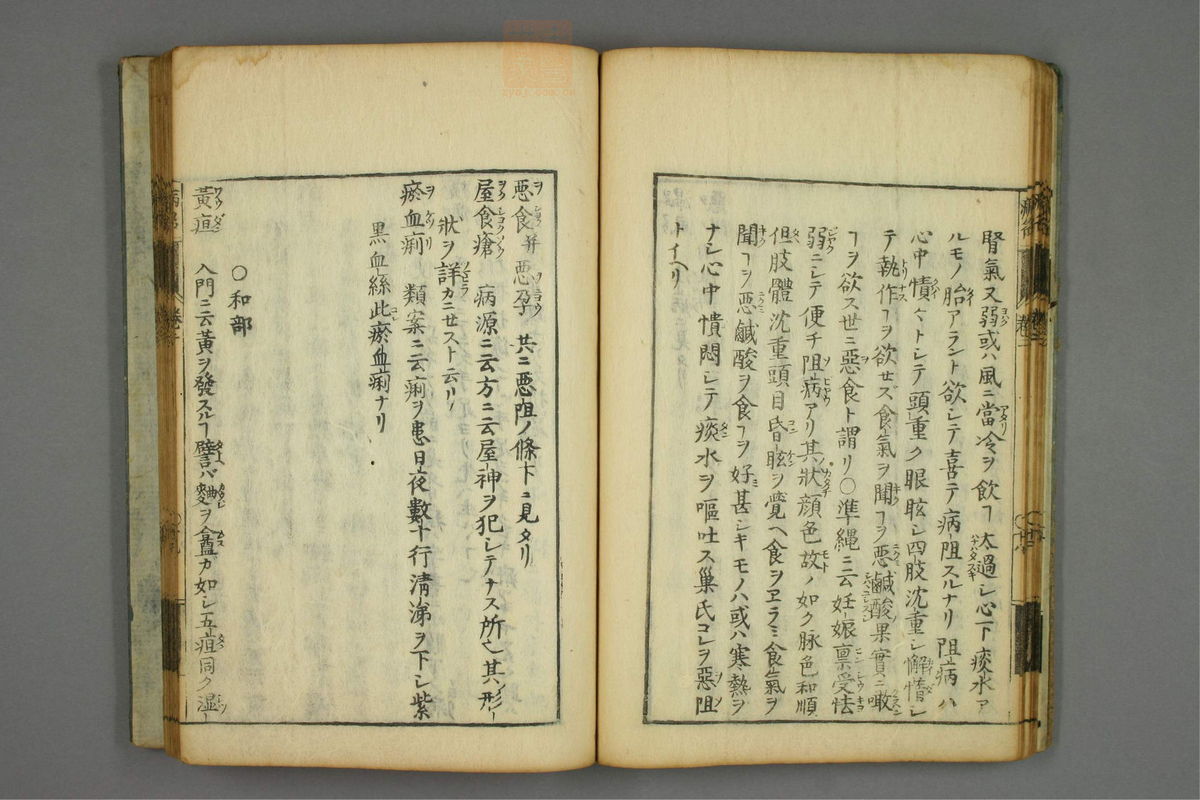 腎氣又弱或ハ風ニ當冷ヲ飮ヿ太過シ心下痰水ア
ルモノ胎アラント欲シテ喜テ病阻スルナリ阻病ハ
心中憒々トシテ頭重ク眼眩シ四肢沈重シ懈惰シ
テ執作ヿヲ欲セズ食氣ヲ聞ヿヲ惡鹹酸果實ニ噉
ヿヲ欲ス世ニ惡食ト謂リ〇準縄ニ云妊娠禀受怯
弱ニシテ便チ阻病アリ其狀顔色故ノ如ク脉色和順
但肢體沈重頭目昏眩ヲ覺ヘ食ヲヱラミ食氣ヲ
聞ヿヲ惡鹹酸ヲ食ヿヲ好甚シキモノハ或ハ寒熱ヲ
ナシ心中憒悶シテ痰水ヲ嘔吐ス巢氏コレヲ惡阻
トイヘリ
惡食并惡孕 共ニ惡阻ノ條下ニ見タリ
屋食瘡 病源ニ云方ニ云屋神ヲ犯シテナス所也其形
狀ヲ詳カニセスト云リ
瘀血痢 類案ニ云痢ヲ患日夜數十行清涕ヲ下シ紫
黒血絲此瘀血痢ナリ
〇和部
黃疸 入門ニ云黃ヲ發スルヿ譬バ麴ヲ盦カ如シ五疸同ク湿